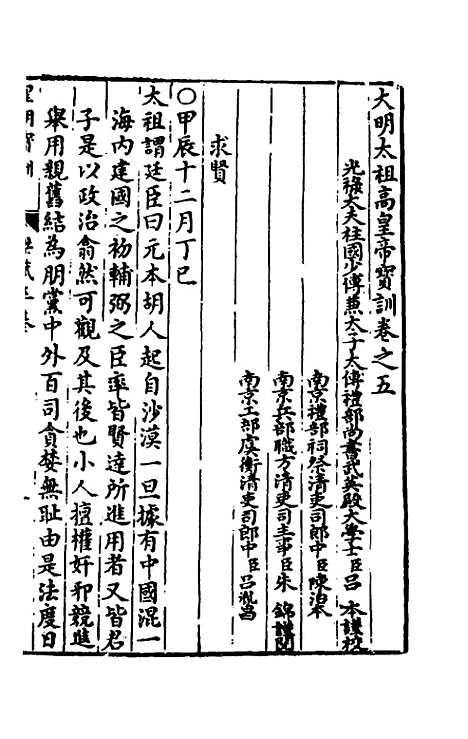 大明太祖高皇帝寶訓卷之五
光祿大夫柱國少傅兼太子太傅禮部尚書武英殿大學士臣呂 本謹校
南京禮部祠祭清吏司郎中臣陳治本
南京兵部職方清吏司主事臣朱 錦謹閱
南京工部虞衡清吏司郎中臣呂胤昌
求賢
○甲辰十二月丁巳
太祖謂廷臣曰元本胡人起自沙漠一旦據有中國混一
海內建國之初輔弼之臣率皆賢達所進用者又皆君
子是以政治翕然可觀及其後也小人擅權奸邪競進
舉用親舊結為朋黨中外百司貪婪無耻由是法度日
皇明寶訓